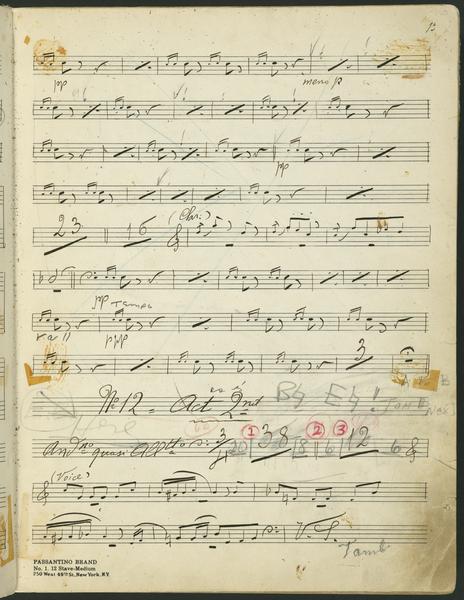 13
pp
meno p
pp
23 16 (Chr.)
pp Tempo
ppp
3
No. 12 = Act 2nd B♮ E♮
Here
Andno quasi Alltto 3/4 20 1 38 18 2 6 3 12 6
(Voice)
V.S.
Tamb.
PASSANTINO BRAND
No. 1. 12 Stave-Medium
250 West 49th St. New York, N.Y.